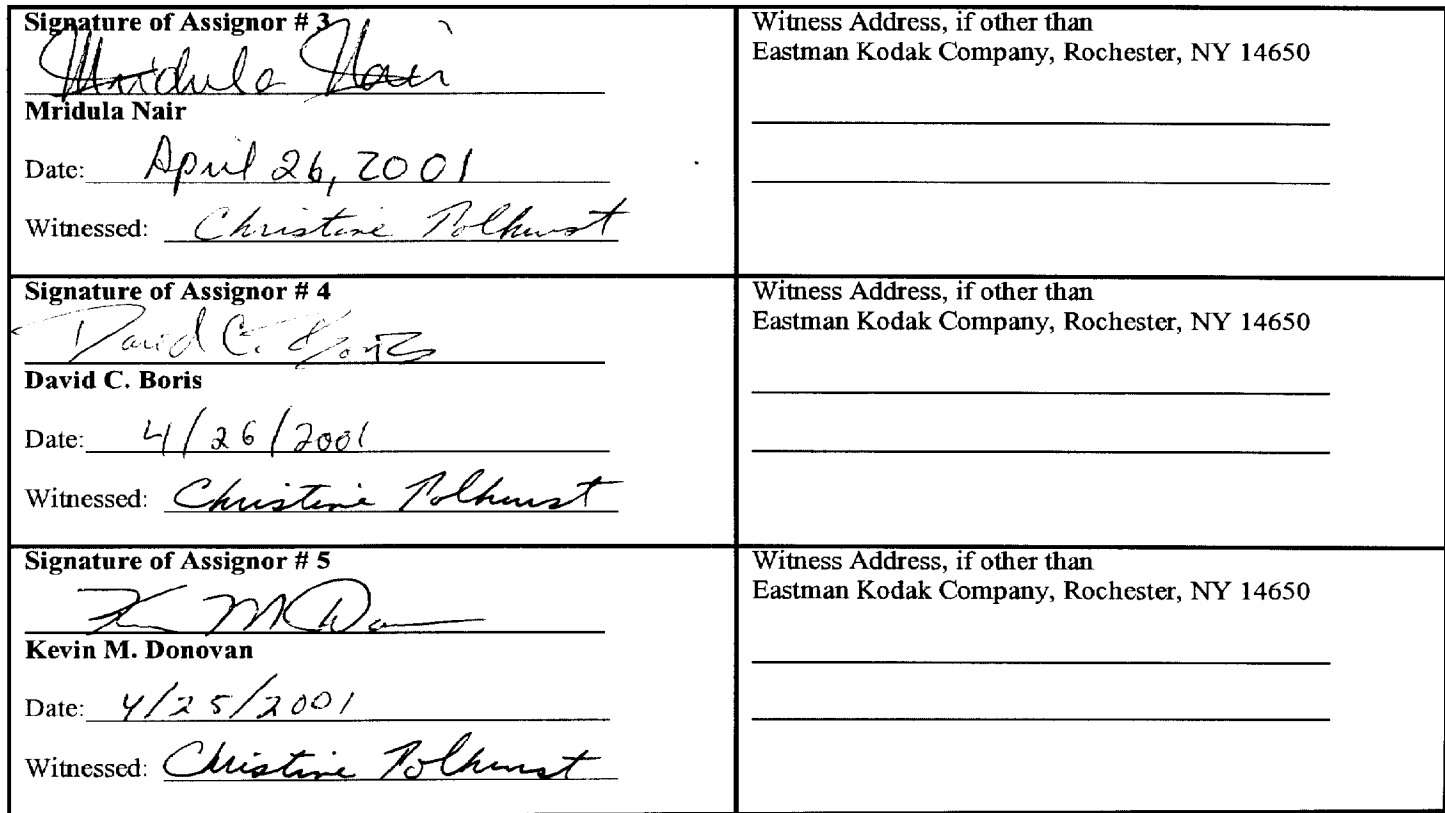 Signature of Assignor # 3
Mridula Nair
Mridula Nair
Date: April 26, 2001
Witnessed: Christine Polhurst
Witness Address, if other than
Eastman Kodak Company, Rochester, NY 14650
Signature of Assignor # 4
David C. Boris
David C. Boris
Date: 4/26/2001
Witnessed: Christine Polhurst
Witness Address, if other than
Eastman Kodak Company, Rochester, NY 14650
Signature of Assignor # 5
Kevin M. Donovan
Date: 4/25/2001
Witnessed: Christine Polhurst
Witness Address, if other than
Eastman Kodak Company, Rochester, NY 14650